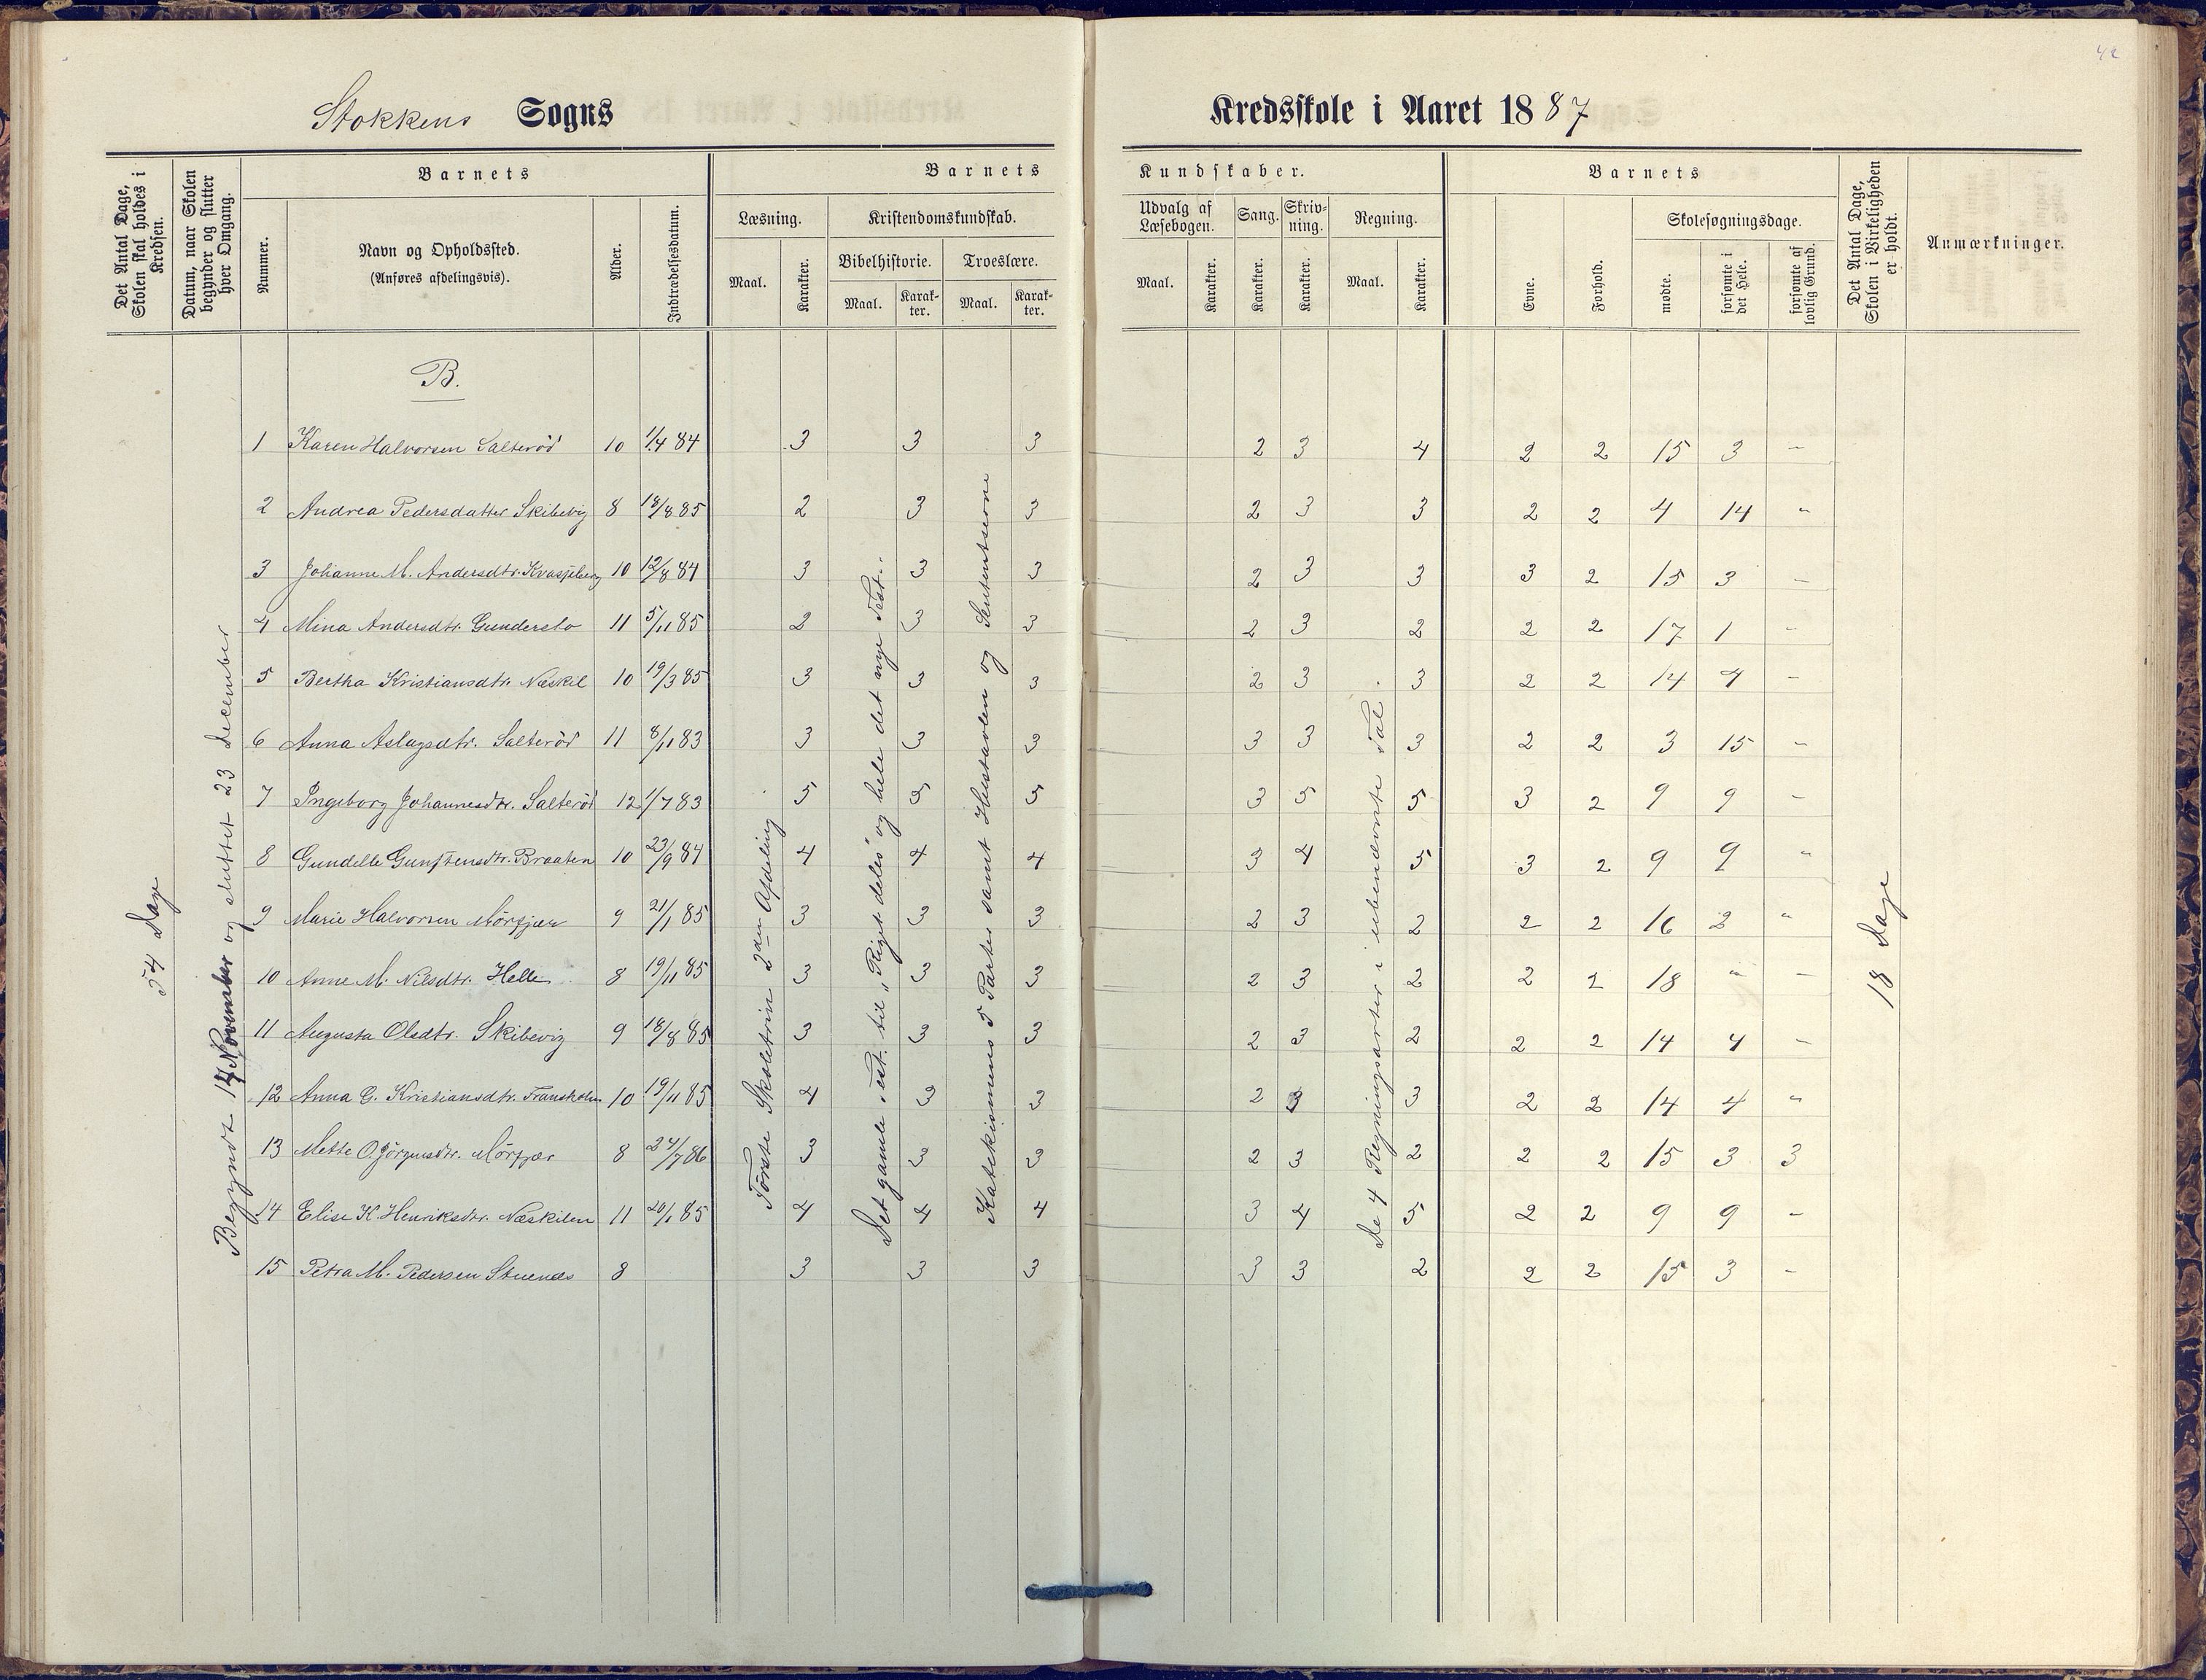 42
Stokkens Sogns
Kredsskole i Aaret 1887
Det Antal Dage, Skolen skal holdes i Kredsen.
Datum, naar Skolen begynder og slutter hver Omgang.
Barnets
Nummer.
Navn og Opholdssted.
(Anføres afdelingsvis).
Alder.
Indtrædelsesdatum.
Barnets
Læsning.
Maal.
Karakter.
Kristendomskundskab.
Bibelhistorie.
Maal.
Karak-
ter.
Troeslære.
Maal.
Karak-
ter.
Kundskaber.
Udvalg af
Læsebogen.
Maal.
Karakter.
Sang.
Karakter.
Skriv-
ning.
Karakter.
Regning.
Maal.
Karakter.
Barnets
Evne.
Forhold.
Skolesøgningsdage.
mødte.
forsømte i det Hele.
forsømte af lovlig Grund.
Det Antal Dage, Skolen i Virkeligheden er holdt.
Anmærkninger.
54 Dage
Begyndt 14 November og sluttet 23 December
Første Skoletrin 2den Afdeling
Det gamle Test. til "Riget deles" og hele det nye Test.
Katekismens 5 Parter samt Hustavlen og Sententserne
De 4 Regningsarter i ubenævnte Tal
18 Dage
B.
1 Karen Halvorsen Salterød 10 1/4 84 3 3 3 2 3 4 2 2 15 3 -
2 Andrea Pedersdatter Skibevig 8 18/8 85 2 3 3 2 3 3 2 2 4 14 "
3 Johanne M. Andersdtr. 10 12/8 84 3 3 3 2 3 3 3 2 15 3 -
4 Mina Andersdtr. Gundersto 11 5/11 85 2 3 3 2 3 2 2 2 17 1 -
5 Bertha Kristiansdtr. Næskil 10 19/3 85 3 3 3 2 3 3 2 2 14 4 -
6 Anna Aslagsdtr. Salterød 11 8/11 83 3 3 3 3 3 3 2 2 3 15 -
7 Ingeborg Johannesdtr. Salterød 12 1/7 83 5 5 5 3 5 5 3 2 9 9 -
8 Gundelle Gunstensdtr. Braaten 10 23/9 84 4 4 4 3 4 5 3 2 9 9 "
9 Marie Halvorsen Mörfjær 9 21/1 85 3 3 3 2 3 2 2 2 16 2 "
10 Anne M. Nilsdtr. Helle 8 19/11 85 3 3 3 2 3 2 2 2 18 " -
11 Augusta Olsdtr. Skibevig 9 18/8 85 3 3 3 2 3 2 2 2 14 4 -
12 Anna G. Kristiansdtr. Fransholm 10 19/11 85 4 3 3 2 3 3 2 2 14 4 "
13 Mette O. Jörgensdtr. Mörfjær 8 24/7 86 3 3 3 2 3 2 2 2 15 3 3
14 Elise K. Henriksdtr. Næskilen 11 20/1 85 4 4 4 3 4 5 2 2 9 9 -
15 Petra M. Pedersen Stuenes 8 3 3 3 3 3 2 2 2 15 3 -